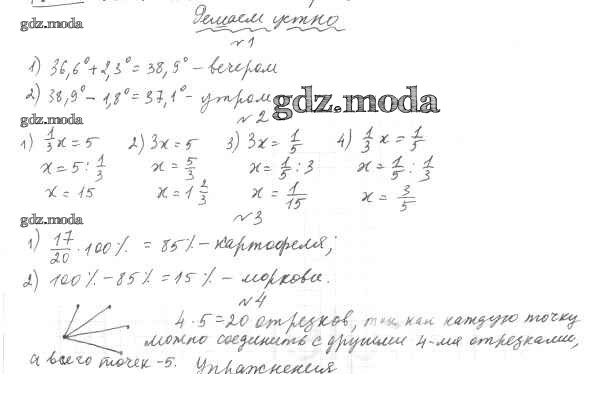 gdz.moda
Решаем устно
№1
1) 36,6° + 2,3° = 38,9° – вечером
2) 38,9° – 1,8° = 37,1° – утром
gdz.moda
gdz.moda
№2
1) 1/3 x = 5 2) 3x = 5 3) 3x = 1/5 4) 1/3 x = 1/5
x = 5 : 1/3 x = 5/3 x = 1/5 : 3 x = 1/5 : 1/3
x = 15 x = 1 2/3 x = 1/15 x = 3/5
gdz.moda
№3
1) 17/20 · 100% = 85% – картофеля;
2) 100% – 85% = 15% – моркови.
№4
4 · 5 = 20 отрезков, так как каждую точку
можно соединить с другими 4-мя отрезками,
а всего точек – 5. Упражнения